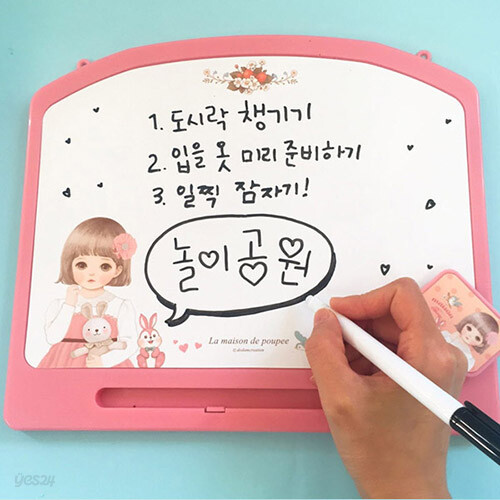 1. 도시락 챙기기
2. 입을 옷 미리 준비하기
3. 일찍 잠자기!
놀이공원
La maison de poupee
yes24